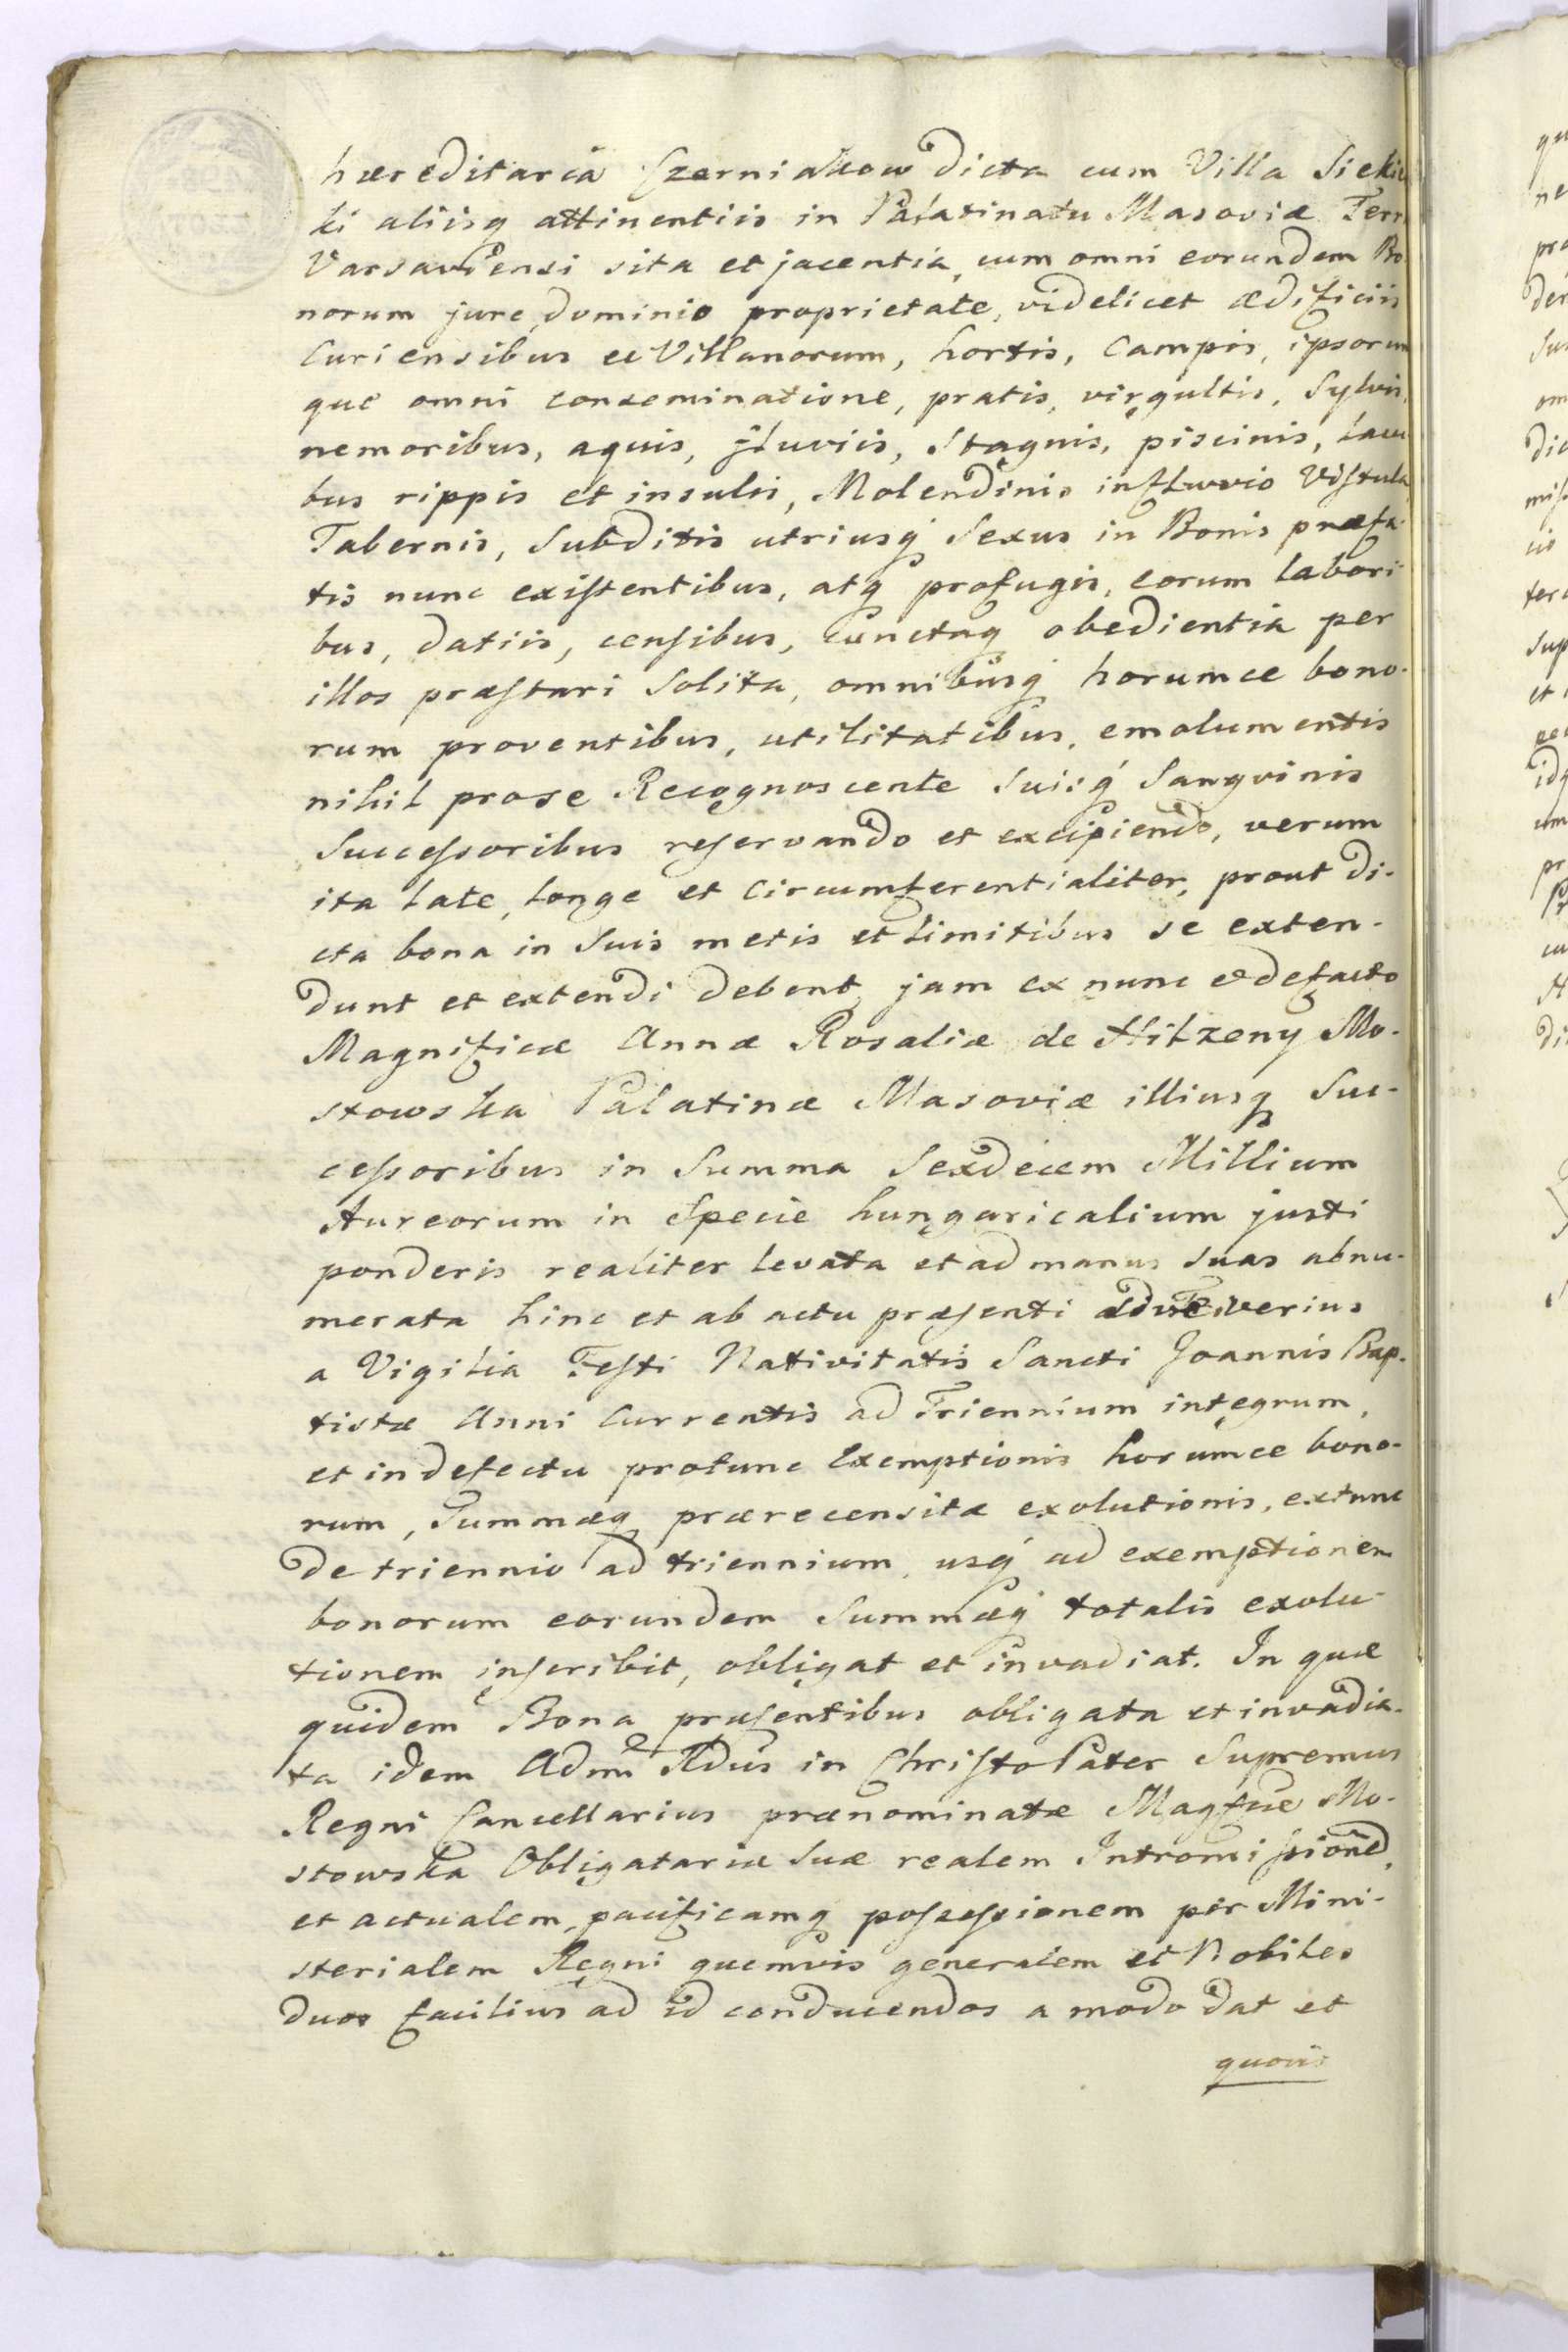 hæreditaria Szerniakow dicta cum Villa Siekie
ki aliisq attinentiis in Palatinatu Masoviæ Terr
Varsaviensi sita et jacentia, cum omni eorundem Bo
norum jure, dominio proprietate, videlicet ædificiis
Curiensibus ec Villanorum, hortis, Campis, ipsorum
que omni conseminatione, pratis, virgultis, Sylvis,
nemoribus, aquis, fluviis, Stagnis, piscinis, lacu
bus rippis et insulis, Molendinis influvio Vistula
Tabernis, Subditis utriusq Sexus in Bonis præfa
tis nunc existentibus, atq profugis, eorum labori
bus, datiis, censibus, cunctaq obedientia per
illos præstari Solita, omnibusq horumce bono-
rum proventibus, utilitatibus, emolumentis
nihil prose Recognoscente Suisq Sangvinis
Successoribus reservando et excipiendo, verum
ita late, longe et Circumferentialiter, prout di-
cta bona in Suis metis et limitibus se exten-
dunt et extendi debent, jam ex nunc et defacto
Magnificæ Annæ Rosaliæ de Hilzeny Mo-
stowska Palatinæ Masoviæ illiusq Suc-
cessoribus in Summa Sexdecem Millium
Aureorum in Specie hungaricalium justi
ponderis realiter levata et ad manus Suas abnu-
merata hinc et ab actu præsenti verius
a Vigilia Festi Nativitatis Sancti Joannis Bap-
tistæ Anni Currentis ad Triennium integrum,
et in defectu protunc Exemptionis horumce bono-
rum, Summæq prærecensitæ exolutionis, extunc
de triennio ad triennium, usq ad exemptionem
bonorum eorundem Summæq totalis exolu-
tionem inscribit, obligat et invadiat. In quæ
quidem Bona præsentibus obligata et invadia-
ta idem Adm Rdus in Christo Pater Supremus
Regni Cancellarius prænominatæ Magfcæ Mo-
stowska Obligatariæ Suæ realem Intromissione,
et actualem, pacificamq possessionem per Mini-
sterialem Regni quemvis generalem et Nobiles
duos facilius ad id conducendos a modo dat et
quovis